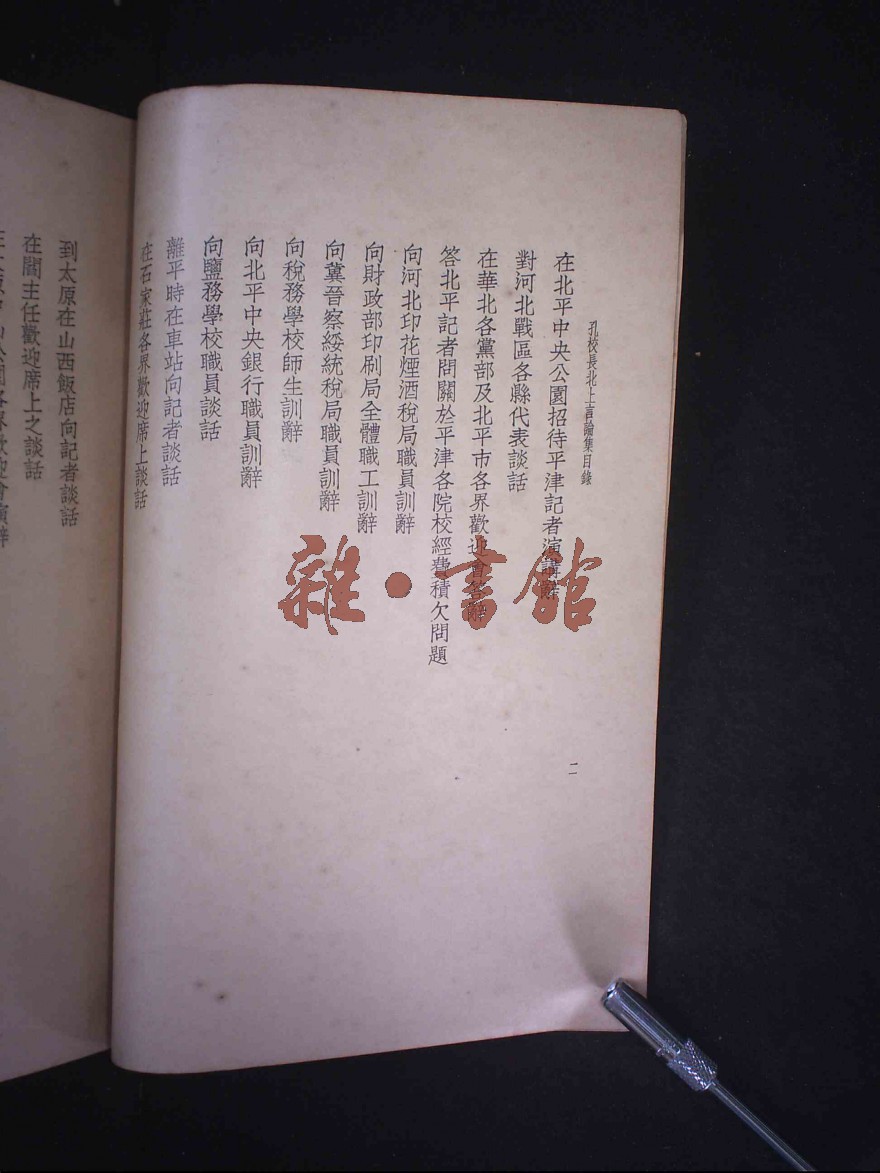 孔校長北上言論集目錄
二
在北平中央公園招待平津記者演講辭
對河北戰區各縣代表談話
在華北各黨部及北平市各界歡迎會答辭
答北平記者問關於平津各院校經費積欠問題
向河北印花煙酒稅局職員訓辭
向財政部印刷局全體職工訓辭
向冀晉察綏統稅局職員訓辭
向稅務學校師生訓辭
向北平中央銀行職員訓辭
向鹽務學校職員談話
離平時在車站向記者談話
在石家莊各界歡迎席上談話
到太原在山西飯店向記者談話
在閻主任歡迎席上之談話
各界歡迎會演辭
雜·書館